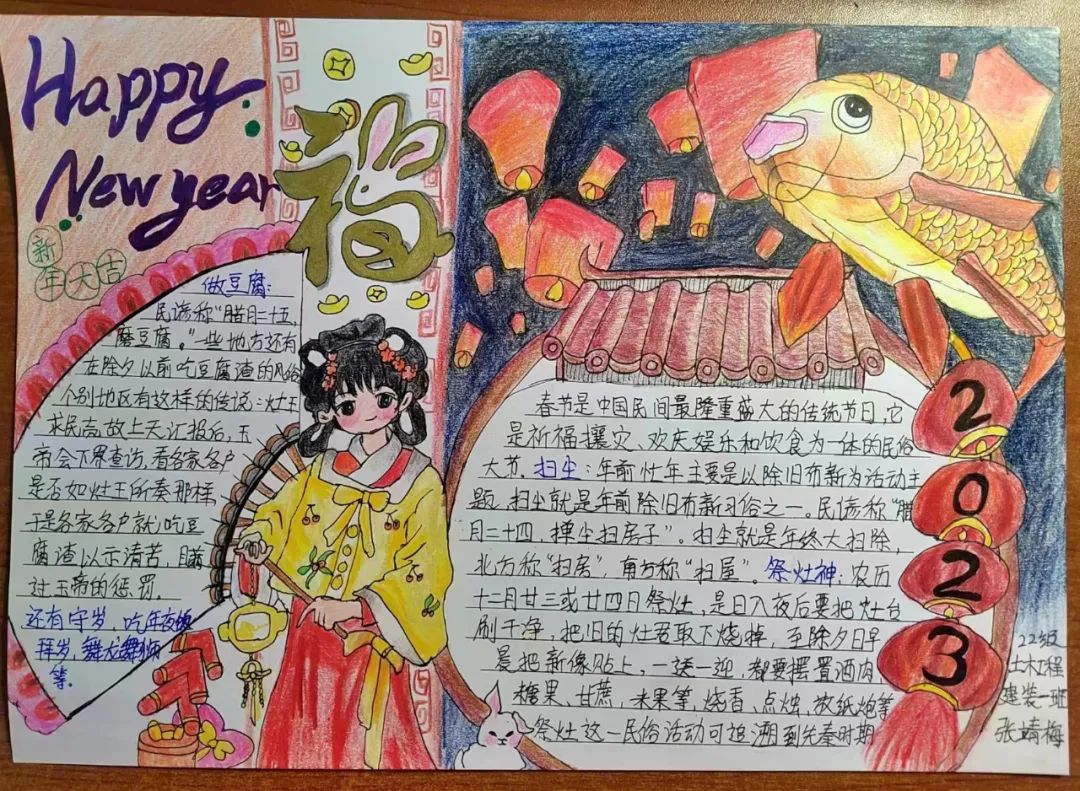 Happy
New year
新年大吉
福
做豆腐:
民谚称“腊月二十五,
磨豆腐。”一些地方还有
在除夕以前吃豆腐渣的风俗
个别地区有这样的传说:灶王
求民意,故上天汇报后,玉
帝会下界查访,看各家各户
是否如灶王所奏那样,
于是各家各户就吃豆
腐渣以示清苦,瞒
过玉帝的惩罚。
还有守岁,吃年夜饭
拜岁,舞龙舞狮
等。
春节是中国民间最隆重盛大的传统节日,它
是祈福攘灾、欢庆娱乐和饮食为一体的民俗
大节. 扫尘:年前忙年主要是以除旧布新为活动主
题,扫尘就是年前除旧布新习俗之一。民谚称“腊
月二十四,掸尘扫房子”。扫尘就是年终大扫除,
北方称“扫房”,南方称“扫屋”。祭灶神:农历
十二月廿三或廿四日祭灶,是日入夜后要把灶台
刷干净,把旧的灶君取下烧掉,至除夕日早
晨把新像贴上,一送一迎,都要摆置酒肉、
糖果、甘蔗、米果等,烧香、点烛、放纸炮等
祭灶这一民俗活动可追溯到先秦时期
2
0
2
3
22级
土木工程
建装一班
张靖梅